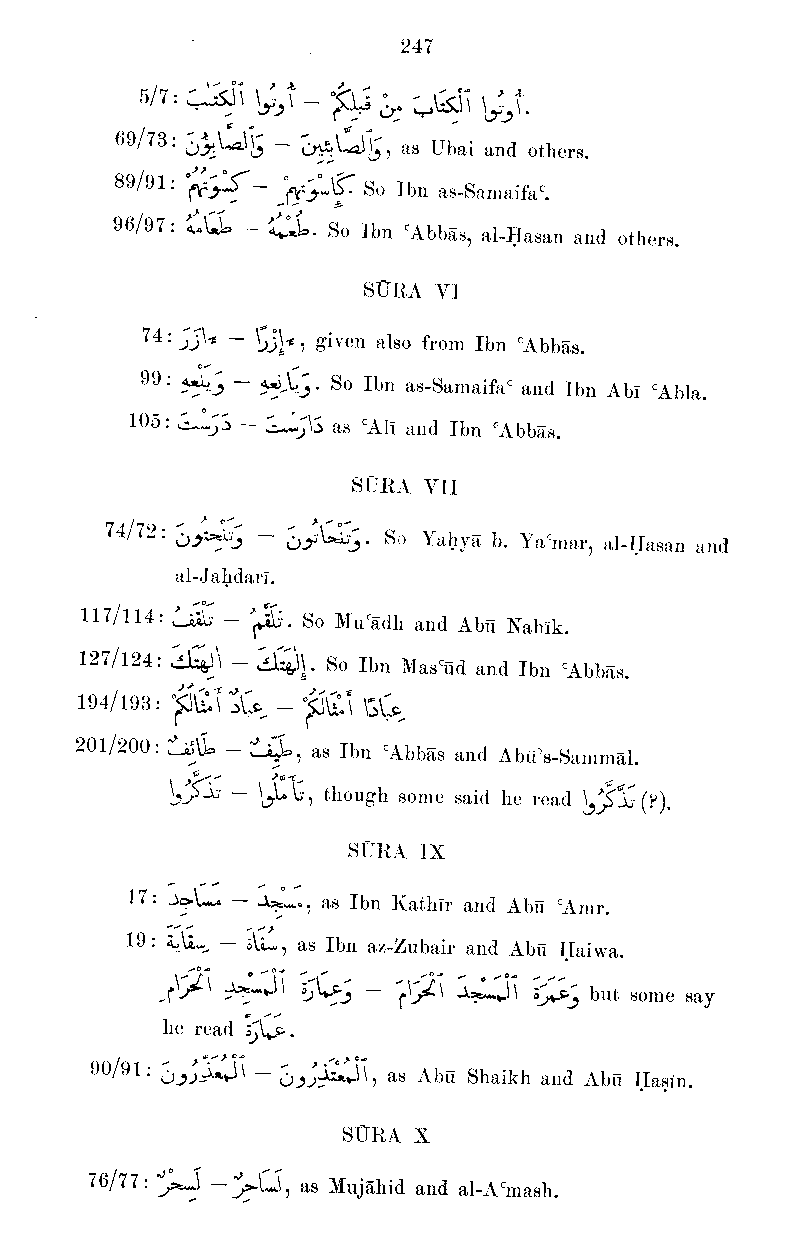 247
5/7: أُوتُوا ٱلْكِتَٰبَ – أُوتُوا ٱلْكِتَابَ مِنْ قَبْلِكُمْ.
69/73: وَٱلصَّابِؤُنَ – وَٱلصَّابِئِينَ, as Ubai and others.
89/91: كِسْوَتُهُمْ – كَإِسْوَتِهِمْ. So Ibn as-Samaifaʿ.
96/97: طَعَامُهُ – طَعْمُهُ. So Ibn ʿAbbās, al-Ḥasan and others.
SŪRA VI
74: ءازَرَ – ءإِزْرًا, given also from Ibn ʿAbbās.
99: وَيَنْعِهِ – وَيَانِعِهِ. So Ibn as-Samaifaʿ and Ibn Abī ʿAbla.
105: دَرَسْتَ -- دَارَسْتَ as ʿAlī and Ibn ʿAbbās.
SŪRA VII
74/72: وَتَنْحِتُونَ – وَتَنْحَاتُونَ. So Yaḥyā b. Yaʿmar, al-Ḥasan and
al-Jaḥdarī.
117/114: تَلْقَفُ – تَلْقَمُ. So Muʿādh and Abū Nahīk.
127/124: آلِهَتَكَ – إِلٰهَتَكَ. So Ibn Masʿūd and Ibn ʿAbbās.
194/193: عِبَادٌ أَمْثَالُكُمْ – عِبَادًا أَمْثَالَكُمْ
201/200: طَائِفٌ – طَيْفٌ, as Ibn ʿAbbās and Abū's-Sammāl.
تَذَكَّرُوا – تَأَمَّلُوا, though some said he read تَذَّكَّرُوا (?).
SŪRA IX
17: مَسَاجِدَ – مَسْجِدَ, as Ibn Kathīr and Abū ʿAmr.
19: سِقَايَةَ – سُقَاةَ, as Ibn az-Zubair and Abū Ḥaiwa.
وَعِمَارَةَ ٱلْمَسْجِدِ ٱلْحَرَامِ – وَعَمَرَةَ ٱلْمَسْجِدَ ٱلْحَرَامَ but some say
he read عَمَارَةَ.
90/91: ٱلْمُعَذِّرُونَ – ٱلْمُعْتَذِرُونَ, as Abū Shaikh and Abū Ḥaṣīn.
SŪRA X
76/77: لَسِحْرٌ – لَسَاحِرٌ, as Mujāhid and al-Aʿmash.